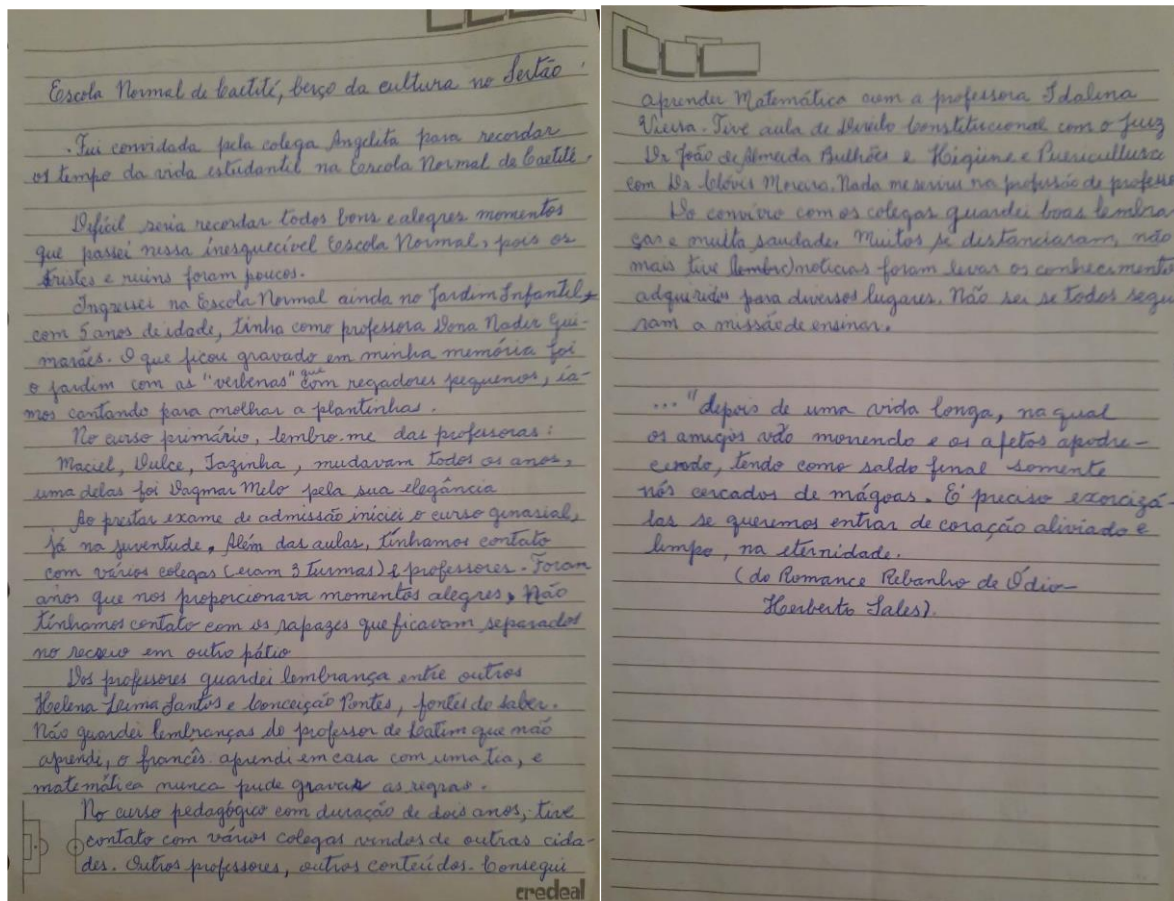 Escola Normal de Caetité, berço da cultura no Sertão.
. Fui convidada pela colega Angelita para recordar
os tempo da vida estudantil na Escola Normal de Caetité.
Difícil seria recordar todos bons e alegres momentos
que passei nessa inesquecível Escola Normal, pois os
tristes e ruins foram poucos.
Ingressei na Escola Normal ainda no Jardim Infantil,
com 5 anos de idade, tinha como professora Dona Nadir Gui-
marães. O que ficou gravado em minha memória foi
o jardim com as "verbenas" que com regadores pequenos, ía-
mos cantando para molhar a plantinhas.
No curso primário, lembro-me das professoras:
Maciel, Dulce, Tazinha, mudavam todos os anos,
uma delas foi Dagmar Melo pela sua elegância
Ao prestar exame de admissão iniciei o curso ginasial,
já na juventude. Além das aulas, tínhamos contato
com vários colegas (eram 3 turmas) e professores. Foram
anos que nos proporcionava momentos alegres, Não
tínhamos contato com os rapazes que ficavam separados
no recreio em outro pátio
Dos professores guardei lembrança entre outros
Helena Lima Santos e Conceição Pontes, fontes do saber.
Não guardei lembranças do professor de Latim que não
aprendi, o francês aprendi em casa com uma tia, e
matemática nunca pude gravar as regras.
No curso pedagógico com duração de dois anos, tive
contato com vários colegas vindos de outras cida-
des. Outros professores, outros conteúdos. Consegui
credeal
aprender Matemática com a professora Idalina
Vieira. Tive aula de Direito Constitucional com o Juiz
Dr João de Almeida Bulhões e Higiene e Puericultura
com Dr Clóvis Moreira. Nada me serviu na profissão de professo
Do convívio com os colegas guardei boas lembra
ças e muita saudade. Muitos se distanciaram, não
mais tive (lembro) notícias foram levar os conhecimento
adquiridos para diversos lugares. Não sei se todos segui
ram a missão de ensinar.
... "depois de uma vida longa, na qual
os amigos vão morrendo e os afetos apodre-
cendo, tendo como saldo final somente
nós cercados de mágoas. É preciso exorcizá
las se queremos entrar de coração aliviado e
limpo, na eternidade.
(do Romance Rebanho de Ódio-
Herberto Sales).